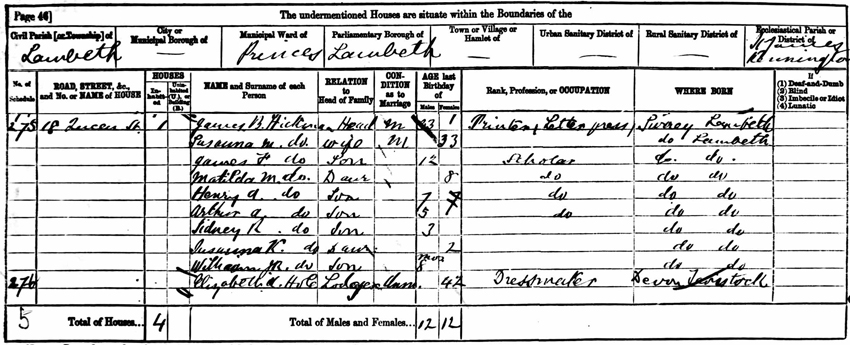 Page 46] The undermentioned Houses are situate within the Boundaries of the
Civil Parish [or Township] of City or Municipal Borough of Municipal Ward of Parliamentary Borough of Town or Village or Hamlet of Urban Sanitary District of Rural Sanitary District of Ecclesiastical Parish or District of
Lambeth Princes Lambeth Kennington
No. of Schedule ROAD, STREET, &c., and No. or NAME of HOUSE HOUSES In-habited Uninhabited (U.), or Building (B.) NAME and Surname of each Person RELATION to Head of Family CONDITION as to Marriage AGE last Birthday of Males Females Rank, Profession, or OCCUPATION WHERE BORN If (1) Deaf-and-Dumb (2) Blind (3) Imbecile or Idiot (4) Lunatic
275 18 Queen St 1 James B. Hickman Head M 33 Printer, Letterpress, Surrey Lambeth
Susanna M. do wife M 33 do Lambeth
James do Son 12 Scholar do do
Matilda M. do Daur 8 do do do
Henry A. do Son 7 do do do
Arthur A. do Son 5 do do do
Sidney R. do Son 3 do do
Susanna K. do Daur 2 do do
William do Son 8 mos do do
276 Elizabeth A. Lodger Unm 42 Dressmaker Devon Tavistock
5 Total of Houses... 4 Total of Males and Females... 12 12